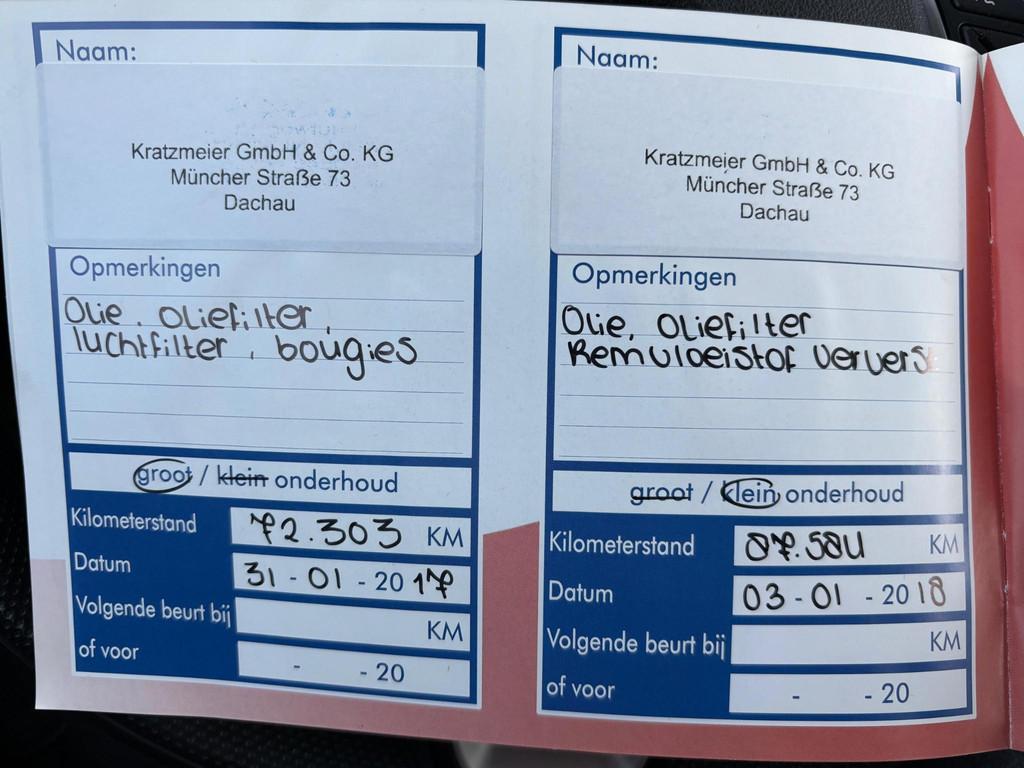 Naam:
Kratzmeier GmbH & Co. KG
Müncher Straße 73
Dachau
Opmerkingen
Olie, oliefilter,
luchtfilter, bougies
groot / klein onderhoud
Kilometerstand 72.303 KM
Datum 31 - 01 - 2017
Volgende beurt bij KM
of voor - - 20
Naam:
Kratzmeier GmbH & Co. KG
Müncher Straße 73
Dachau
Opmerkingen
Olie, oliefilter
Remvloeistof ververst
groot / klein onderhoud
Kilometerstand 87.584 KM
Datum 03 - 01 - 2018
Volgende beurt bij KM
of voor - - 20